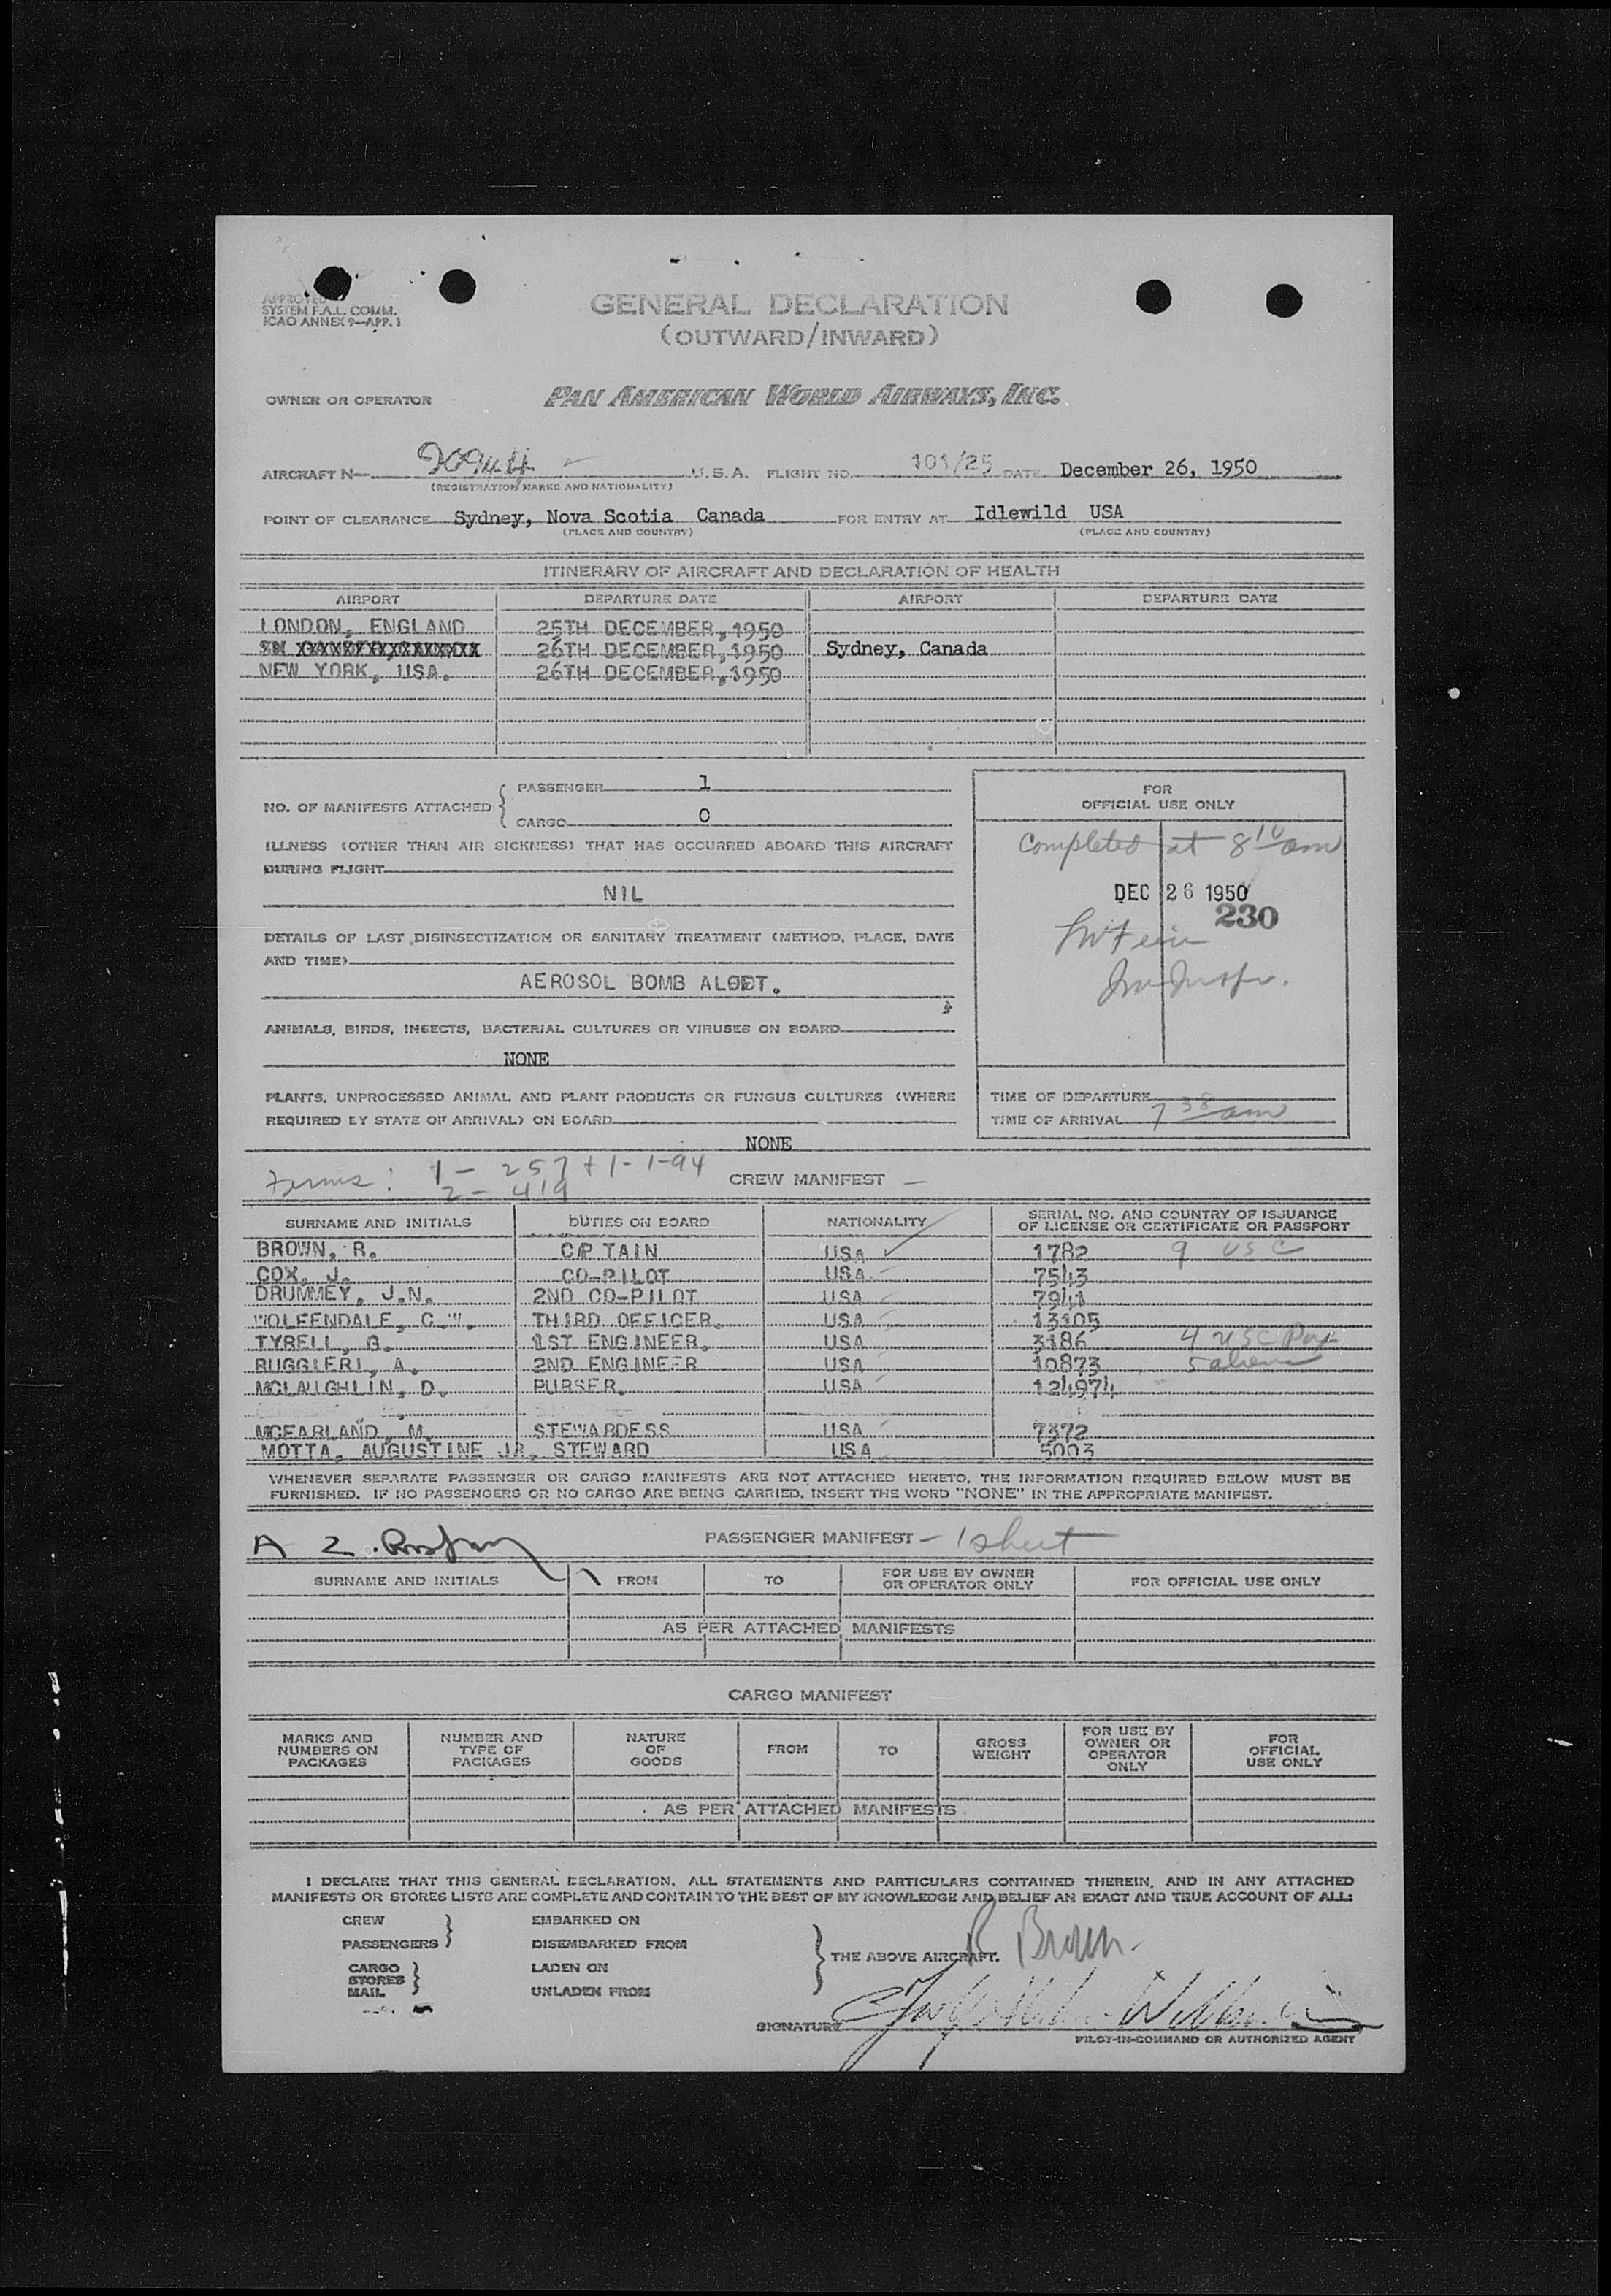 APPROVED
SYSTEM F.A.L. COMM.
ICAO ANNEX 9—APP. 1
GENERAL DECLARATION
(OUTWARD/INWARD)
OWNER OR OPERATOR PAN AMERICAN WORLD AIRWAYS, INC.
AIRCRAFT N— U.S.A. FLIGHT NO. 101/25 DATE December 26, 1950
(REGISTRATION MARKS AND NATIONALITY)
POINT OF CLEARANCE Sydney, Nova Scotia Canada FOR ENTRY AT Idlewild USA
(PLACE AND COUNTRY) (PLACE AND COUNTRY)
ITINERARY OF AIRCRAFT AND DECLARATION OF HEALTH
AIRPORT DEPARTURE DATE AIRPORT DEPARTURE DATE
LONDON, ENGLAND 25TH DECEMBER, 1950
26TH DECEMBER, 1950 Sydney, Canada
NEW YORK, USA. 26TH DECEMBER, 1950
NO. OF MANIFESTS ATTACHED { PASSENGER 1
CARGO 0
ILLNESS (OTHER THAN AIR SICKNESS) THAT HAS OCCURRED ABOARD THIS AIRCRAFT
DURING FLIGHT
NIL
DETAILS OF LAST DISINSECTIZATION OR SANITARY TREATMENT (METHOD, PLACE, DATE
AND TIME)
AEROSOL BOMB
ANIMALS, BIRDS, INSECTS, BACTERIAL CULTURES OR VIRUSES ON BOARD
NONE
PLANTS, UNPROCESSED ANIMAL AND PLANT PRODUCTS OR FUNGUS CULTURES (WHERE
REQUIRED BY STATE OF ARRIVAL) ON BOARD
NONE
FOR
OFFICIAL USE ONLY
Completed at 8 10 am
DEC 26 1950
230
Im Inspr.
TIME OF DEPARTURE
TIME OF ARRIVAL 7 38 am
1- 257 + 1-1-94
2- 419
CREW MANIFEST
SURNAME AND INITIALS DUTIES ON BOARD NATIONALITY SERIAL NO. AND COUNTRY OF ISSUANCE
OF LICENSE OR CERTIFICATE OR PASSPORT
BROWN, R. CAPTAIN USA 1782 9 USC
COX, J. CO-PILOT USA 7543
DRUMMEY, J.N. 2ND CO-PILOT USA 7941
WOLFENDALE, C.W. THIRD OFFICER. USA 13105
TYRELL, G. 1ST ENGINEER. USA 3186 4 USC Pax
RUGGLERI, A. 2ND ENGINEER USA 10873 5 aliens
MCLAUGHLIN, D. PURSER. USA 124974
MCFARLAND, M. STEWARDESS USA 7372
MOTTA, AUGUSTINE JR. STEWARD USA 5003
WHENEVER SEPARATE PASSENGER OR CARGO MANIFESTS ARE NOT ATTACHED HERETO, THE INFORMATION REQUIRED BELOW MUST BE
FURNISHED. IF NO PASSENGERS OR NO CARGO ARE BEING CARRIED, INSERT THE WORD "NONE" IN THE APPROPRIATE MANIFEST.
PASSENGER MANIFEST - 1 sheet
SURNAME AND INITIALS FROM TO FOR USE BY OWNER
OR OPERATOR ONLY FOR OFFICIAL USE ONLY
AS PER ATTACHED MANIFESTS
CARGO MANIFEST
MARKS AND
NUMBERS ON
PACKAGES NUMBER AND
TYPE OF
PACKAGES NATURE
OF
GOODS FROM TO GROSS
WEIGHT FOR USE BY
OWNER OR
OPERATOR
ONLY FOR
OFFICIAL
USE ONLY
AS PER ATTACHED MANIFESTS
I DECLARE THAT THIS GENERAL DECLARATION, ALL STATEMENTS AND PARTICULARS CONTAINED THEREIN, AND IN ANY ATTACHED
MANIFESTS OR STORES LISTS ARE COMPLETE AND CONTAIN TO THE BEST OF MY KNOWLEDGE AND BELIEF AN EXACT AND TRUE ACCOUNT OF ALL:
CREW EMBARKED ON
PASSENGERS DISEMBARKED FROM
CARGO LADEN ON
STORES
MAIL UNLADEN FROM
THE ABOVE AIRCRAFT.
R Brown
SIGNATURE
PILOT-IN-COMMAND OR AUTHORIZED AGENT